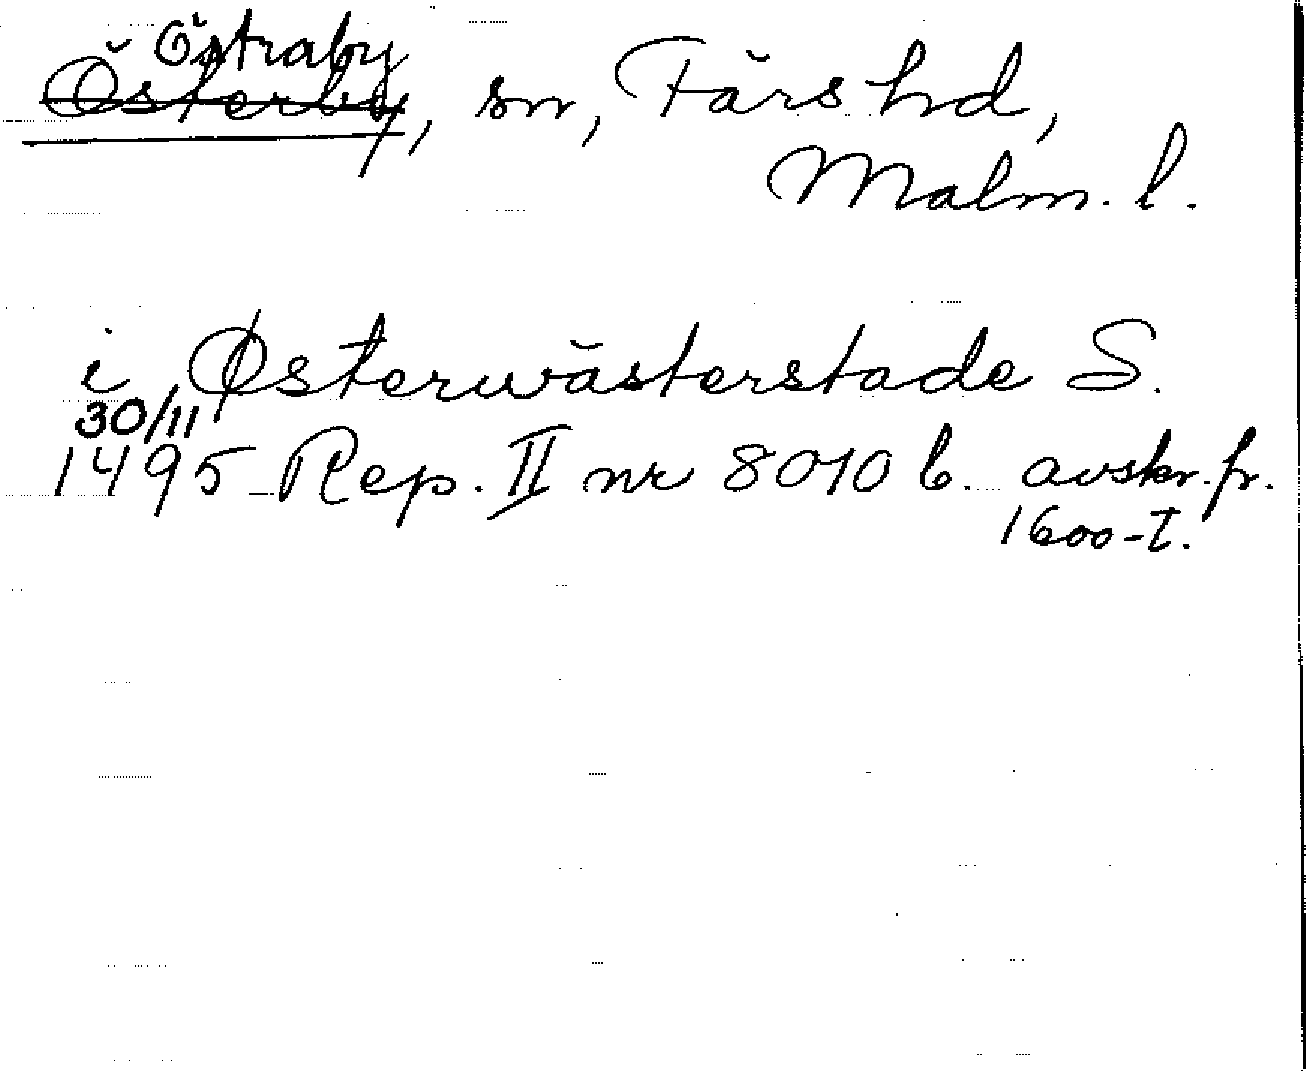 Östraby
Österby, sn, Färs hd,
Malm. l.
i Østerwästerstade S.
30/11
1495 Rep. II nr 8010 b. avskr. fr.
1600-t.